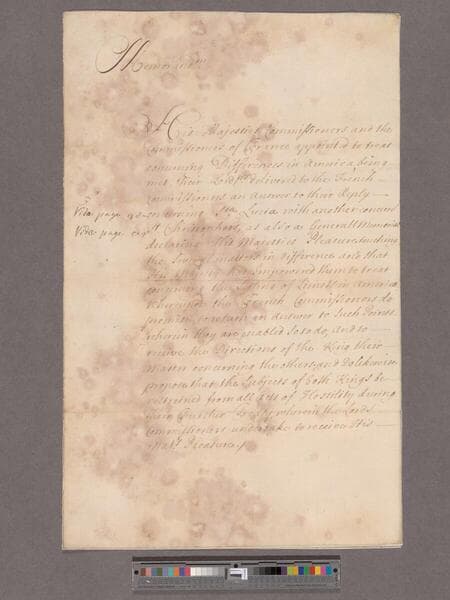 Memorandum
His Majesties Commissioners and the
Commissioners of France appointed to treat
concerning Differences in America being
met their Lordpps delivered to the French
Commissioners an answer to their Reply
Vide page concerning Sta Lucia with another concern
Vide page St Christophers, as also a Generall Memorial
declaring His Majesties Pleasure touching
the matters in difference and that
His Majesty has empowered them to treat
concerning the of Limitts in America
whereupon the French Commissioners do
promise to return an answer to such Points
wherein they are enabled so to do, and to
receive the Directions of the King their
Master concerning the others, and do likewise
propose that the Subjects of both Kings be
restrained from all acts of Hostility during
wherein the Lords
Commissioners undertake to receive His
Matys Pleasure